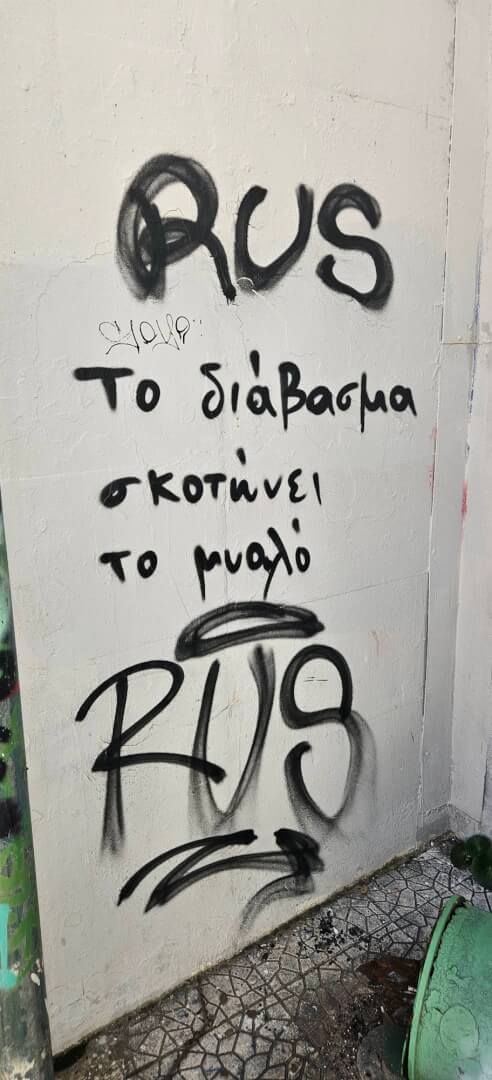 RUS
Το διάβασμα
σκοτώνει
το μυαλό
RUS